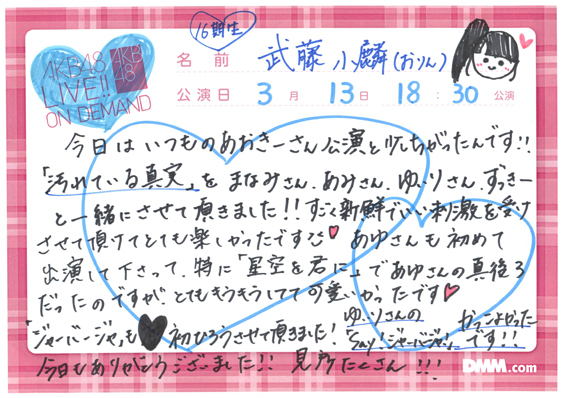 16期生
AKB48
LIVE!!
ON DEMAND
AKB
48
名前 武藤 小麟(おりん)
公演日 3月 13日 18:30 公演
今日はいつものあおきーさん公演と少しちがったんです!!
「汚れている真実」をまなみさん、あみさん、ゆいりさん、ずっきー
と一緒にさせて頂きました!!すごく新鮮でいい刺激を受け
させて頂けてとても楽しかったです あゆさんも初めて
出演して下さって、特に「星空を君に」であゆさんの真後ろ
だったのですが、とてもきうきうしてて可愛いかったです
「ジャーバージャ」も 初ひろうさせて頂きました!
ゆいりさんの
「Say!ジャーバージャ」 かっこよかった
です!!
今日もありがとうございました!! 見所たくさん!!!
DMM.com